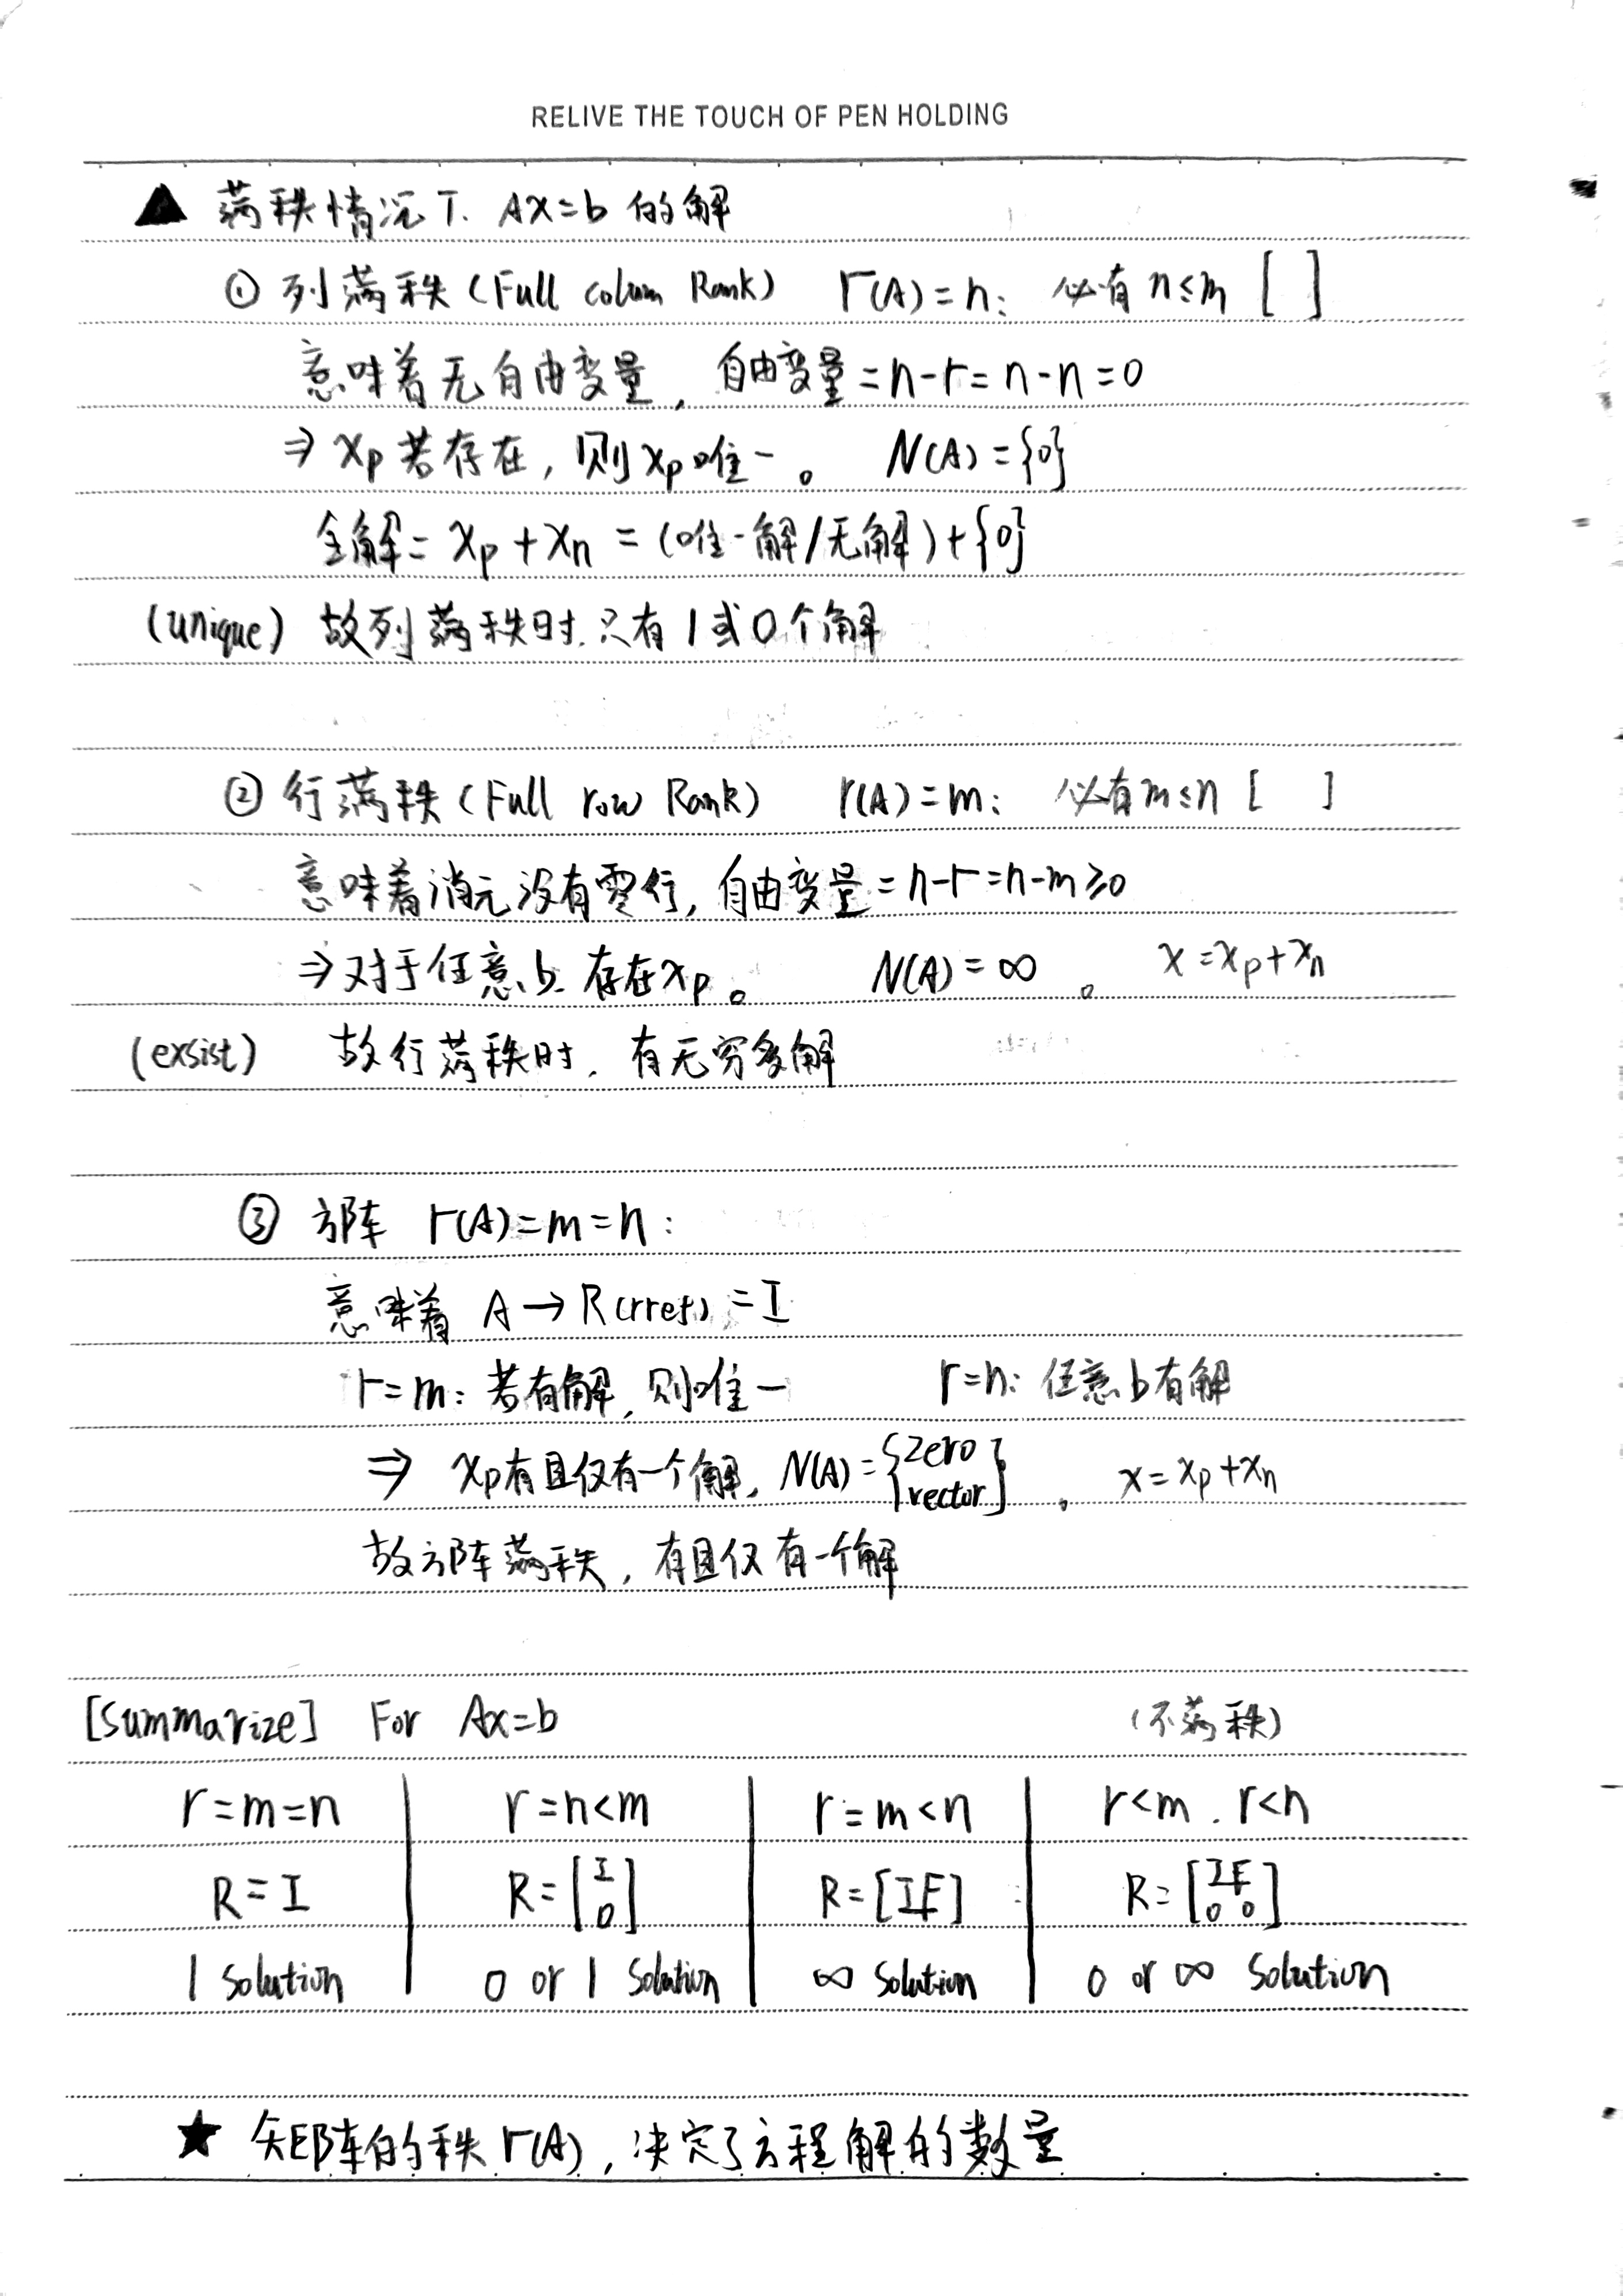 RELIVE THE TOUCH OF PEN HOLDING
▲ 满秩情况下. Ax=b 的解
① 列满秩 (Full colum Rank) r(A)=n: 必有 n≤m [ ]
意味着无自由变量, 自由变量=n-r=n-n=0
⇒ xp 若存在, 则 xp 唯一。 N(A)={0}
全解= xp+xn = (唯一解/无解)+{0}
(unique) 故列满秩时.只有1或0个解
② 行满秩 (Full row Rank) r(A)=m: 必有m≤n [ ]
意味着消元没有零行, 自由变量=n-r=n-m≥0
⇒ 对于任意b. 存在xp。 N(A)=∞ 。 x=xp+xn
(exsist) 故行满秩时, 有无穷多解
③ 方阵 r(A)=m=n:
意味着 A→R(rref)=I
r=m: 若有解, 则唯一 r=n: 任意b有解
⇒ xp有且仅有一个解, N(A)={zero vector} 。 x=xp+xn
故方阵满秩, 有且仅有一个解
[Summarize] For Ax=b (不满秩)
r=m=n r=n<m r=m<n r<m . r<n
R=I R=[I 0] R=[IF] R=[IF 0 0]
1 Solution 0 or 1 Solution ∞ Solution 0 or ∞ Solution
★ 矩阵的秩 r(A), 决定了方程解的数量